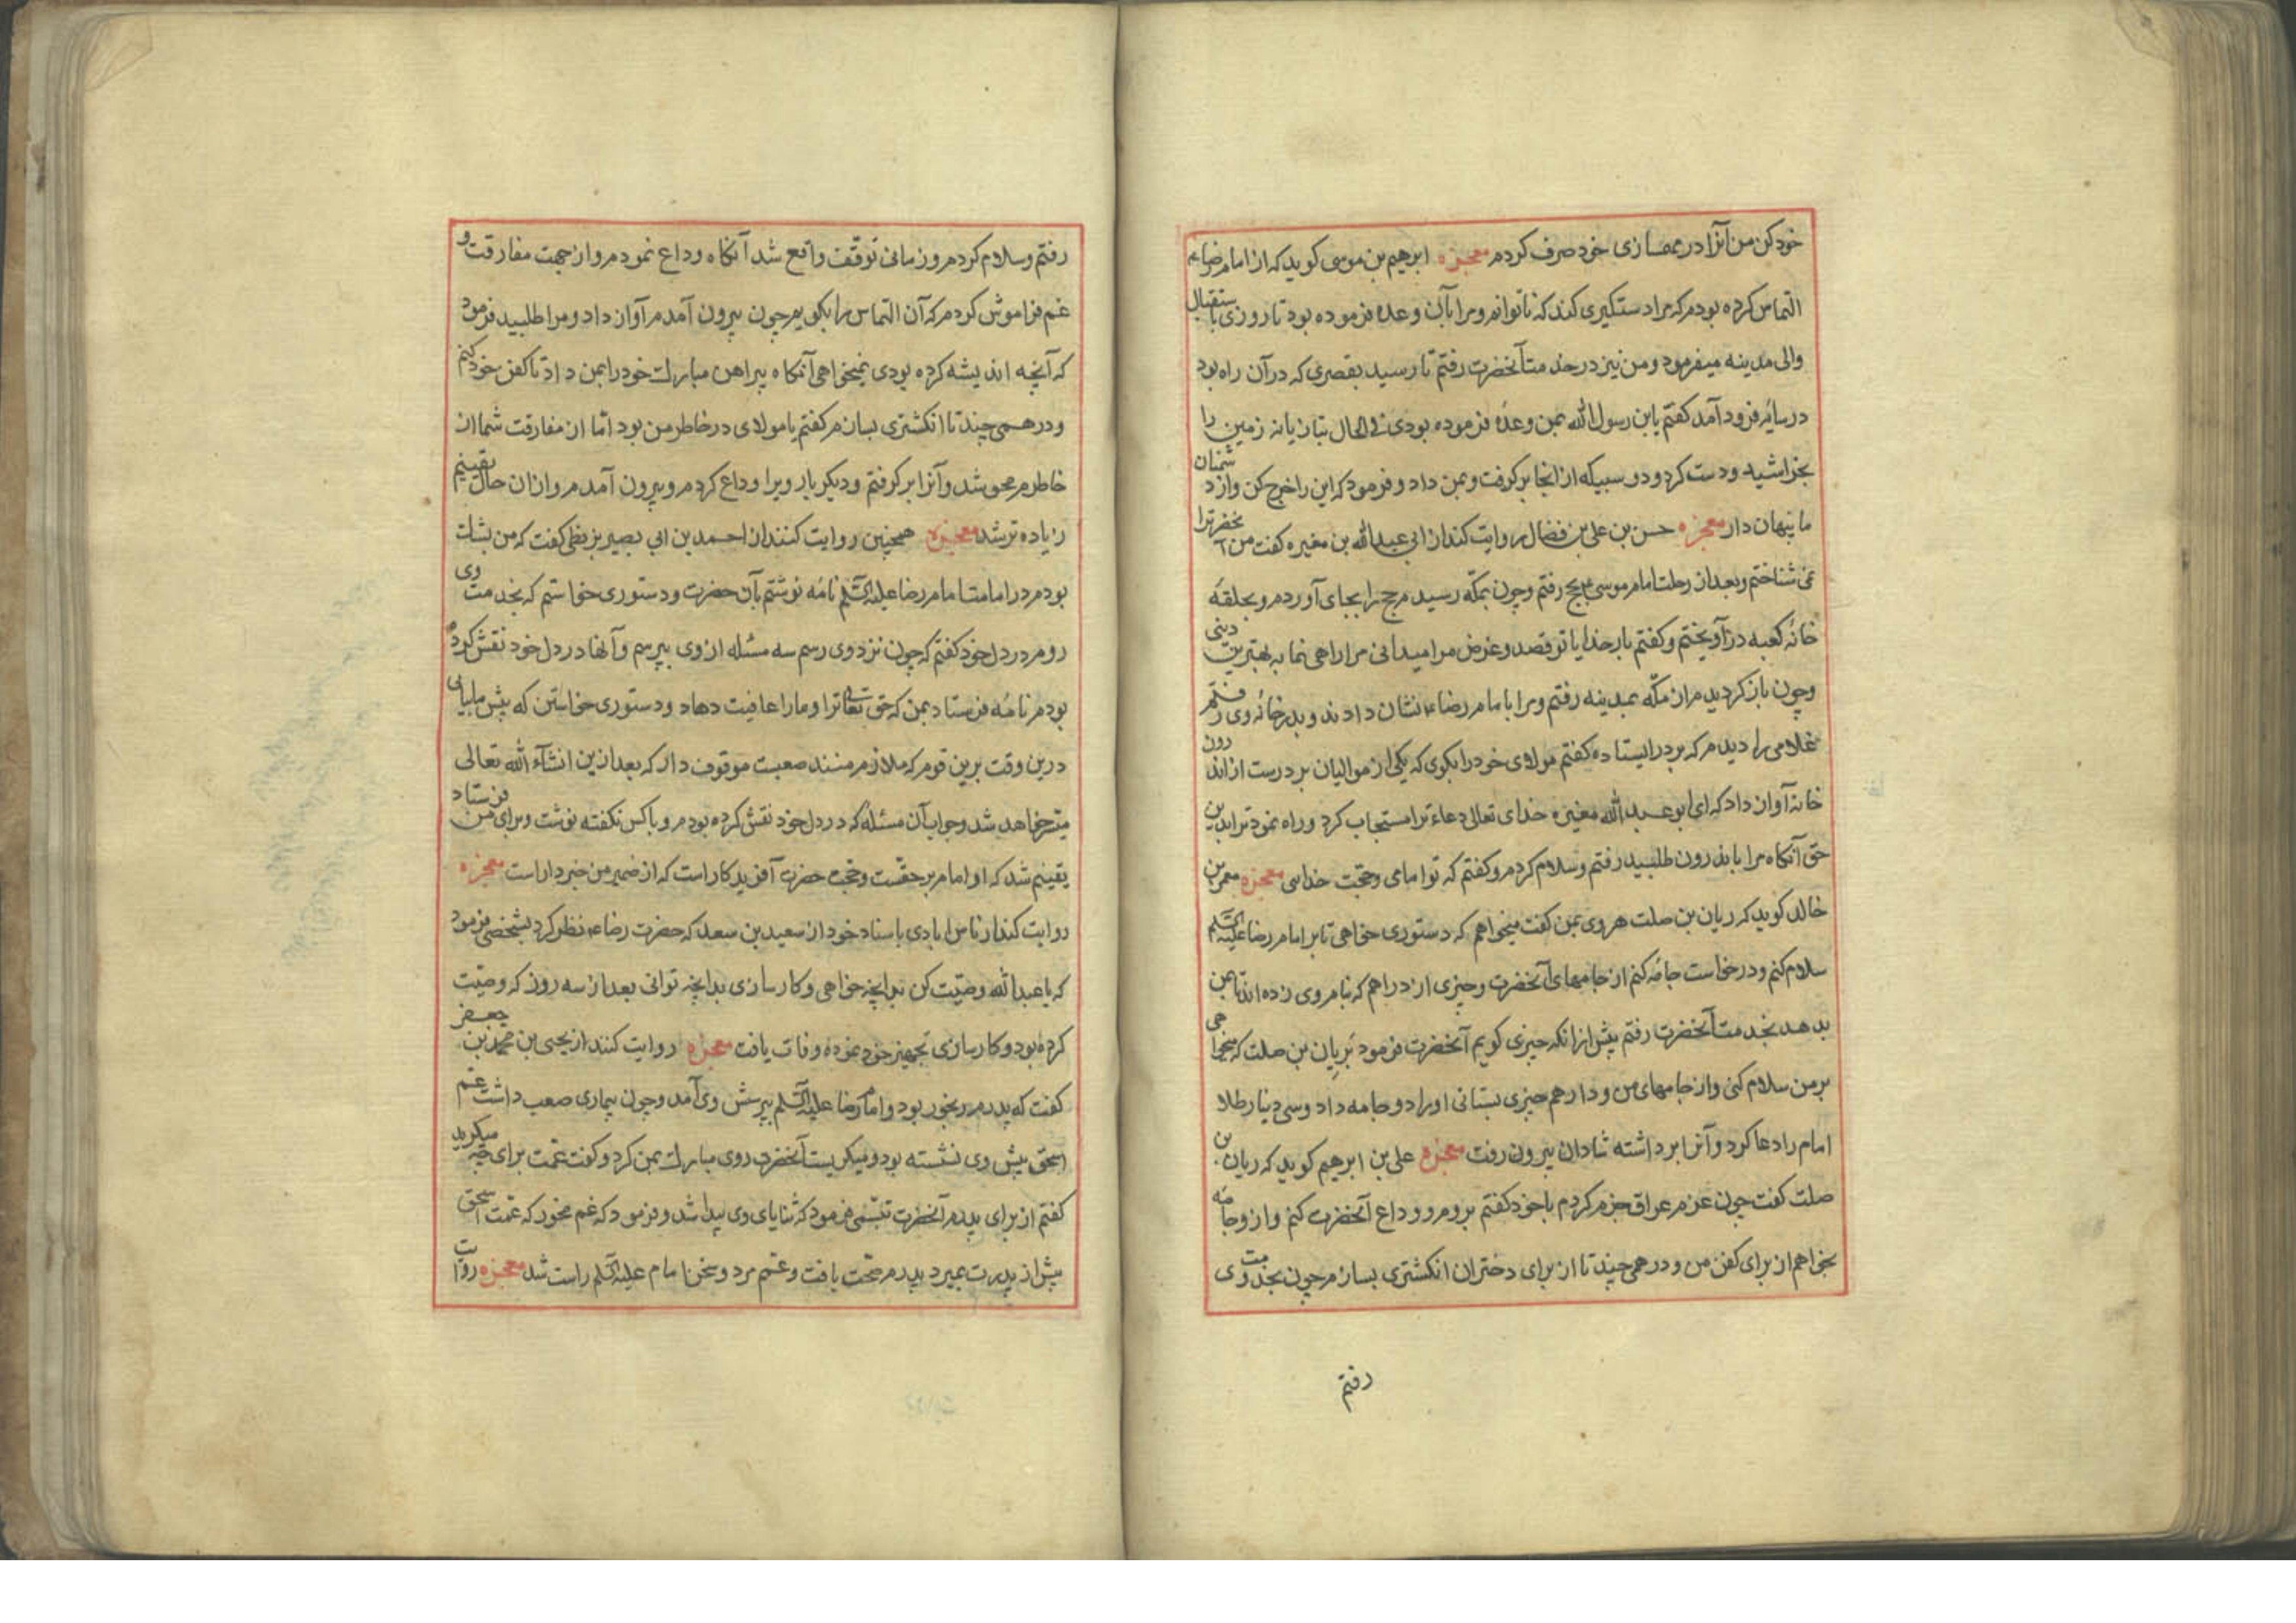 خود کن من آنرا در عمارت سازی خود صرف کردم معجزه ابرهیم بن موسی کوید که از امام رضا ع
التماس کرده بودم که مرا دستکیری کند که ناتوانم ومرا بآن وعده فرموده بود تا روزی باستقبال
والی مدینه میفرمود ومن نیز در خدمت آنحضرت رفتم تا رسید بقصری که در آن راه بود
در سایه فرود آمد کفتم یابن رسول الله بمن وعده فرموده بودی فی الحال بتازیانه زمین را
بخراشید ودست کرد ودو سبیکه از انجا بر کرفت وبمن داد وفرمود که این را خرج کن واز دشمنان
ما پنهان دار معجزه حسن بن علی بن فضال روایت کند از ابی عبدالله بن مغیره کفت من آنحضرترا
نمی شناختم وبعد از رحلت امام موسی ع بحج رفتم وچون بمکه رسیدم حج را بجای آوردم وبحلقه
خانه کعبه در آویختم وکفتم بار خدایا تو قصد وغرض مرا میدانی مرا راهی نما به بهترین دینی
وچون باز کردیدم از مکه بمدینه رفتم ومرا بامام رضا ع نشان دادند وبدر خانه وی رفتم
غلامی را دیدم که بر در ایستاده کفتم مولای خود را بکوی که یکی از موالیان بر درست از اندرون
خانه آواز داد که ای ابو عبد الله مغیره خدای تعالی دعاء ترا مستجاب کرد وراه نمود ترا بدین
حق آنکاه مرا باندرون طلبید رفتم وسلام کردم وکفتم که تو امامی وحجت خدایی معجزه معمر بن
خالد کوید که ریان بن صلت هروی بمن کفت میخواهم که دستوری خواهی تا بر امام رضا علیه السلم
سلام کنم ودرخواست جامه کنم از جامهای آنحضرت وچیزی از دراهم که بنام وی زده اند تا بمن
بدهد بخدمت آنحضرت رفتم پیش از انکه چیزی کویم آنحضرت فرمود بریان بن صلت که میخواهی
بر من سلام کنی واز جامهای من ودارهم چیزی بستانی او را دو جامه داد وسی دینار طلا
امام را دعا کرد وآنرا برداشته شادان بیرون رفت معجزه علی بن ابرهیم کوید که ریان بن
صلت کفت چون عزم عراق جزم کردم باخود کفتم بروم ووداع آنحضرت کنم واز وجامه
بخواهم از برای کفن من ودرهمی چند تا از برای دختران انکشتری بسازم چون بخدمت وی
رفتم
رفتم وسلام کردم وزمانی توقف واقع شد آنکاه وداع نمودم واز جهت مفارقت و
غم فراموش کردم که آن التماس را بکویم چون بیرون آمدم آواز داد ومرا طلبید فرمود
که آنچه اندیشه کرده بودی نمیخواهی آنکاه پیراهن مبارک خود را بمن داد تا کفن خود کنم
ودرهمی چند تا انکشتری بسازم کفتم یا مولای در خاطر من بود اما از مفارقت شما از
خاطرم محو شد وآنرا بر کرفتم ودیکر بار ویرا وداع کردم وبیرون آمدم واز ان حال یقینیم
زیاده تر شد معجزه همچنین روایت کنند از احمد بن ابی بصیر بزنطی کفت که من بشک
بودم در امامت امام رضا علیه السلم نامه نوشتم بآن حضرت ودستوری خواستم که بخدمت وی
روم در دل خود کفتم که چون نزد وی رسم سه مسئله از وی بپرسم وآنها در دل خود نقش کرده
بودم نامه فرستاد بمن که حق تعالی ترا ومارا عافیت دهاد ودستوری خواستن که پیش ما بیای
درین وقت برین قوم که ملازم منند صعبت موقوف دار که بعد ازین انشآء الله تعالی
میسر خواهد شد وجواب آن مسئله که در دل خود نقش کرده بودم وبا کس نکفته نوشت وبرای من فرستاد
یقینم شد که او امام بر حقست وحجت حضرت آفریدکار است که از ضمیر من خبردار است معجزه
روایت کند از ناس ابادی باسناد خود از سعید بن سعد که حضرت رضا ع نظر کرد بشخصی فرمود
که یا عبدالله وصیت کن بدانچه خواهی وکارسازی بدانچه توانی بعد از سه روز که وصیت
کرده بود وکارسازی تجهیز خود نموده وفات یافت معجزه روایت کنند از یحیی بن محمد بن جعفر
کفت که پدرم رنجور بود وامام رضا علیه السلم بپرسش وی آمد وچون بیماری صعب داشت عمم
اسحق پیش وی نشسته بود ومیکریست آنحضرت روی مبارک بمن کرد وکفت عمت برای چه میکرید
کفتم از برای پدرم آنحضرت تبسمی فرمود که ثنایای وی پیدا شد وفرمود که غم مخور که عمت اسحق
پیش از پدرت بمیرد پدرم صحت یافت وعمم مرد وسخن امام علیه السلم راست شد معجزه روایت